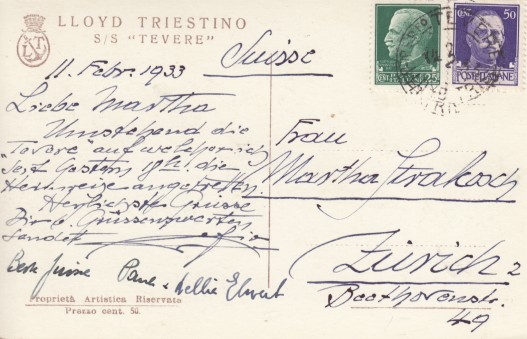 LLOYD TRIESTINO
S/S "TEVERE"
Suisse
11. Febr. 1933
Liebe Martha
Umstehend die
"Tevere" auf welcher ich
seit gestern die
Heimreise angetreten.
Herzlichste Grüsse
Dir &
sendet
Beste Paul & Nellie
Frau
Martha Strakosch
Zürich 2
Beethovenstr.
49
CENT. 25
CENT. 50
POSTE ITALIANE
Proprietà Artistica Riservata
Prezzo cent. 50.